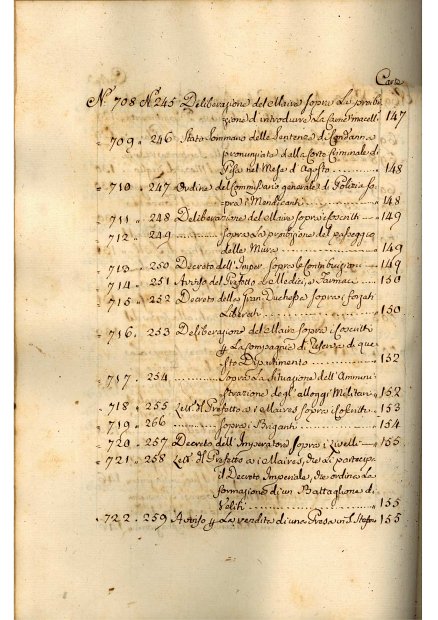 Carte
N.º 708 N.º 245 Deliberazione del Maire sopra la proibi-
zione d'introdurre la Carne macell. 147
" 709. " 246 Stato Sommario delle Sentenze di Condanna
pronunziate dalla Corte Criminale di
Pisa nel Mese d'Agosto " 148
" 710 " 247 Ordine del Commissario generale di Polizia so-
pra i Mendicanti " 148
" 711 " 248 Deliberazione del Maire sopra i Coscritti " 149
" 712 " 249 sopra la proibizione del passeggio
delle Mura " 149
" 713 " 250 Decreto dell'Imper. sopra le Contribuzioni " 149
" 714 " 251 Avviso del Prefetto a i Medici, e Farmaci " 150
" 715 " 252 Decreto della Gran Duchessa sopra i forzati
Liberati " 150
" 716. " 253 Deliberazione del Maire sopra i Coscritti
p la Compagnia di Riserva di que-
sto Dipartimento " 152
" 717 " 254 Sopra la Situazione dell'Ammini-
strazione degl'alloggi Militari " 152
" 718 " 255 Lett. del Prefetto a i Maires sopra i Coscritti 153
" 719 " 266 sopra i Briganti " 154
" 720 " 257 Decreto dell'Imperatore sopra i Livelli " 155
" 721 " 258 Lett. del Prefetto a i Maires, che li partecipa
il Decreto Imperiale, che ordina la
formazione di un Battaglione di
Veliti " 155
" 722 " 259 Avviso p la vendita di una Presa in S. Stefano 155